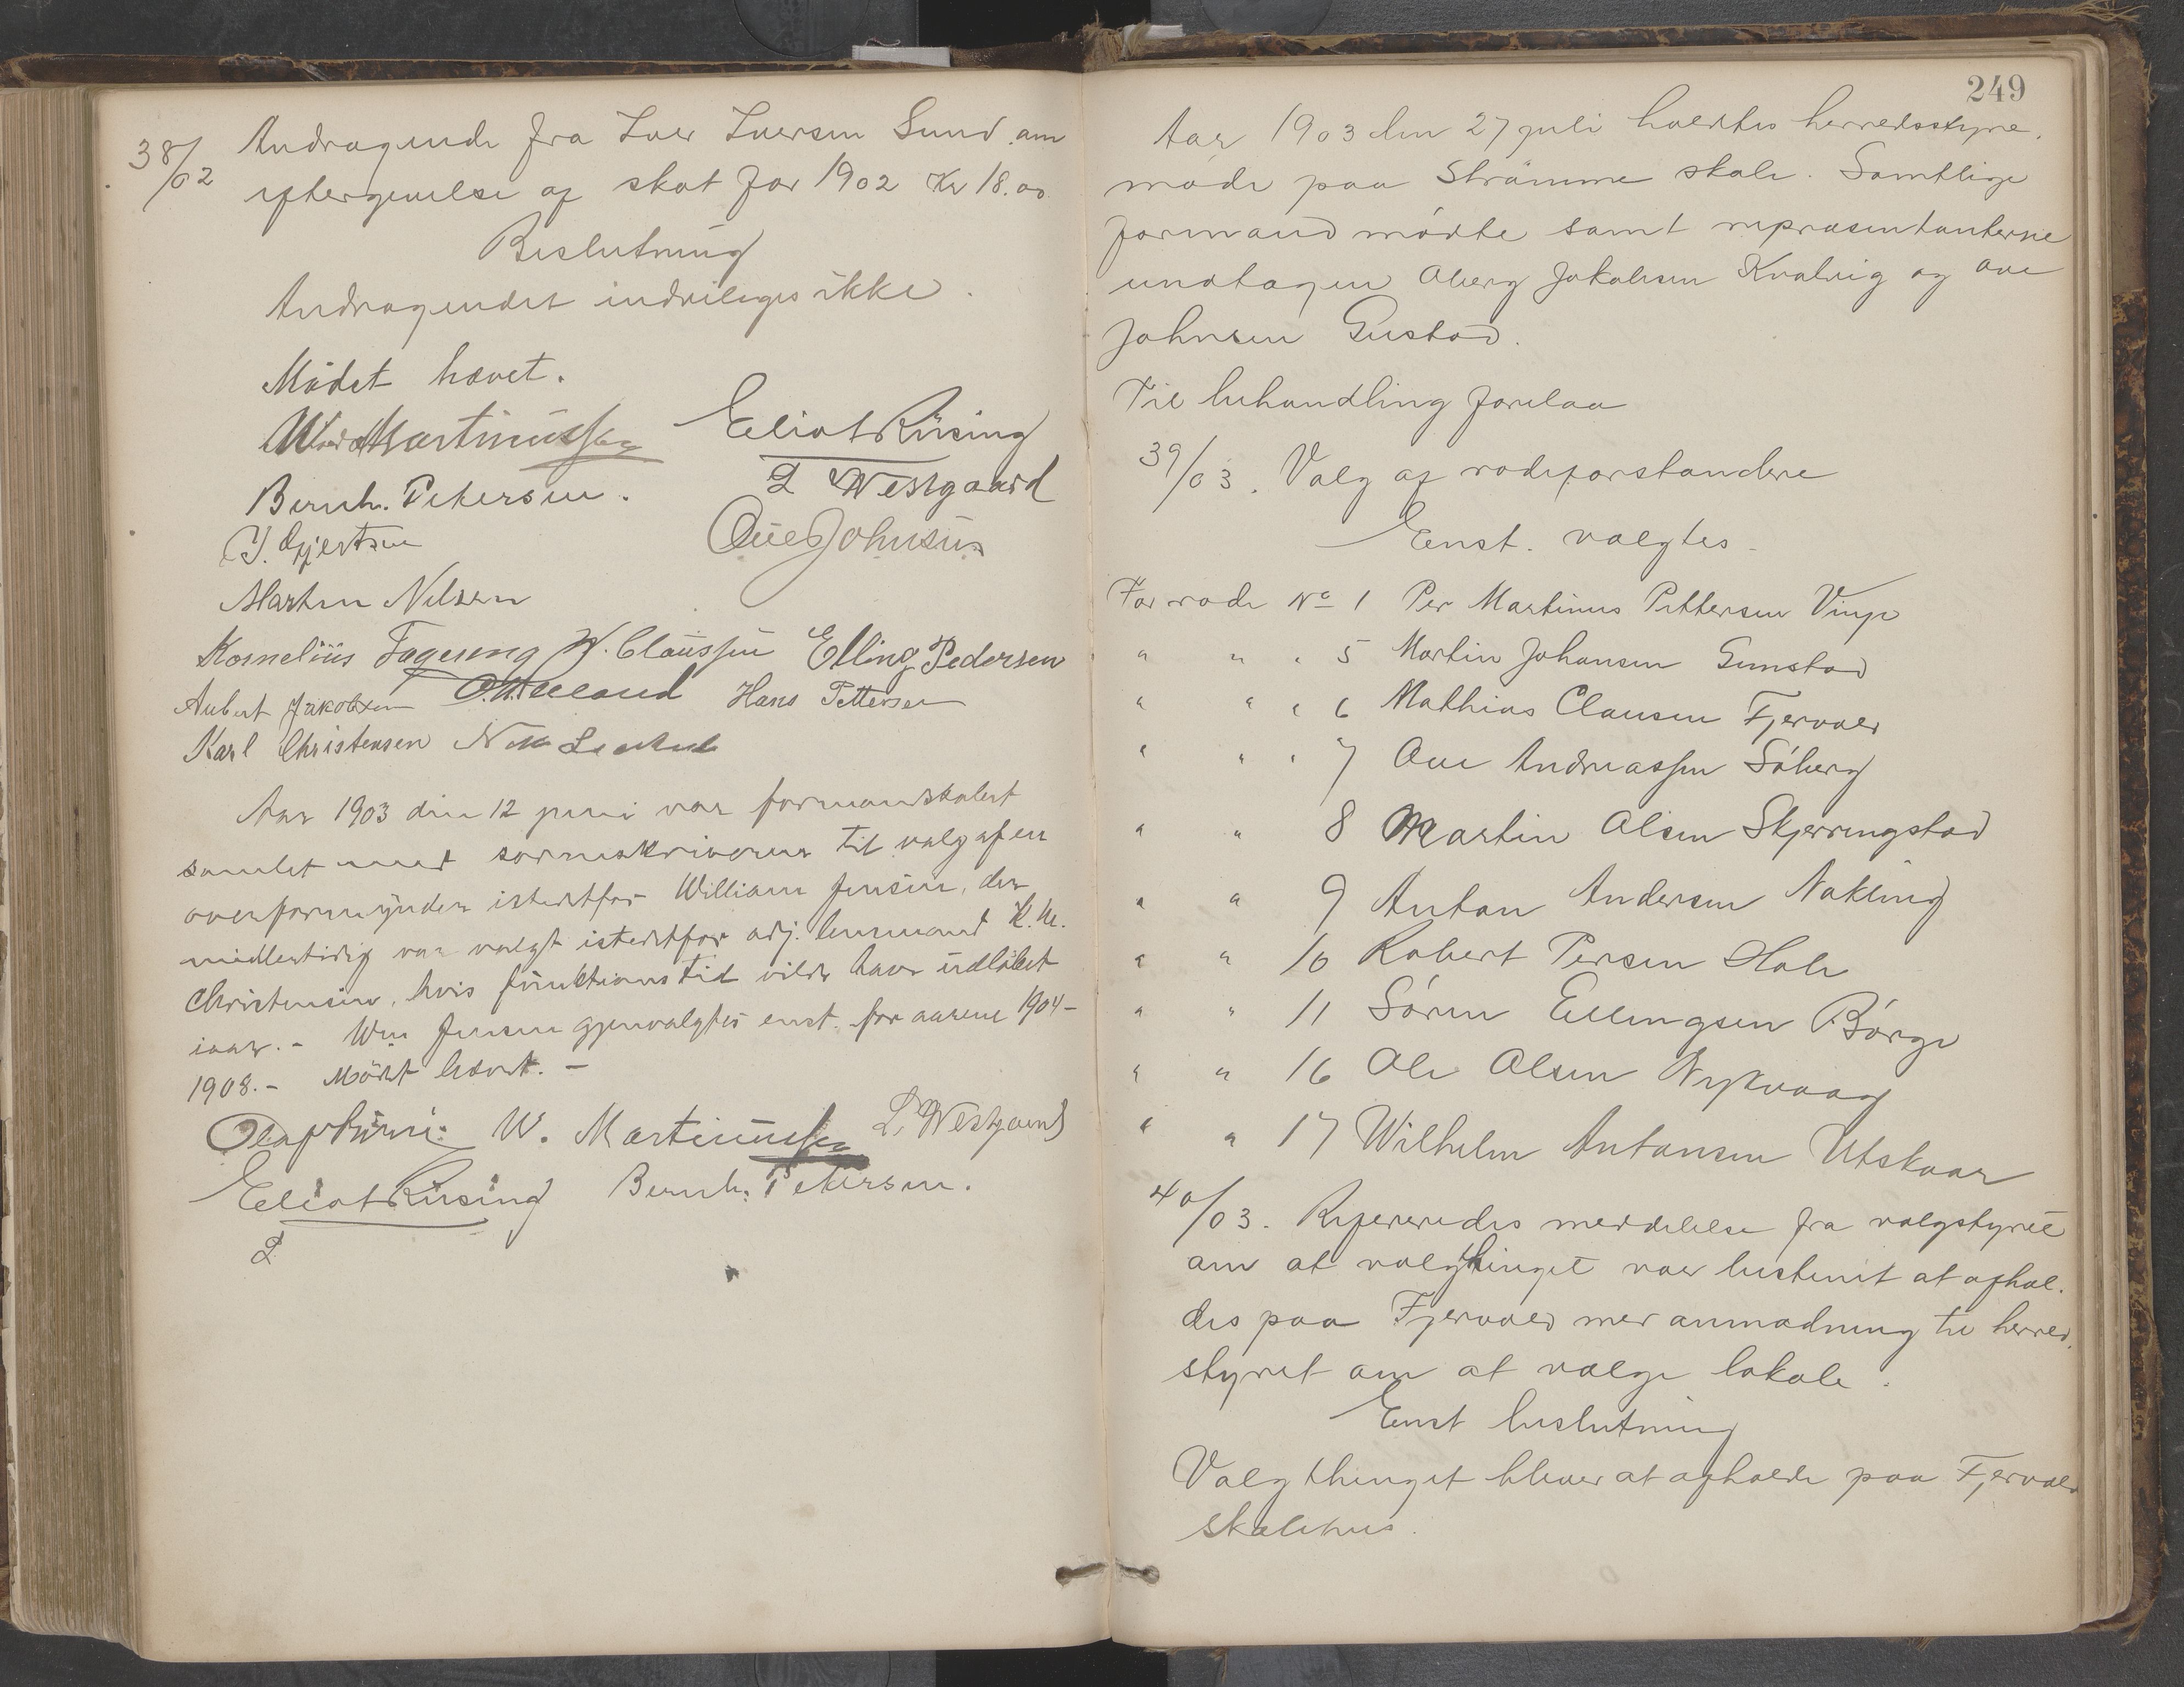 38/02 Andragende fra Iver Iversen Sund om
eftergivelse af skat for 1902 Kr 18.00
Beslutning
Andragendet indvilges ikke.
Mødet hævet.
Ward Martinussen Eliot Rüsing
Bernh. Petersen. L Westgaard
I. Gjertsen Ove Johnsen
Martin Nilsen
Kornelius Fagereng W. Claussen Elling Pedersen
Aubert Jakobsen Hans Pettersen
Karl Christensen
Aar 1903 den 12 juni var formandskabet
samlet med sorenskriveren til valg af en
overformynder istedetfor William Jensen, der
midlertidig var valgt istedetfor afdj. lensmand K. Kr.
Christensen, hvis funktionstid vilde have udløbet
iaar. - Wm Jensen gjenvalgtes enst. for aarene 1904-
1908. - Mødet hævet. -
W. Martinussen L. Westgaard
Eliot Rüsing Bernh. Petersen.
L
249
Aar 1903 den 27 juli holdtes herredsstyre.
møde paa Strømme skole. Samtlige
formænd mødte samt repræsentanterne
undtagen Oberg Jakobsen Kvalvig og Ove
Johnsen Gustad.
Til behandling forelaa
39/03. Valg af rodeforstandere
Enst. valgtes
For rode No 1 Per Martinus Pettersen Vinje
" " " 5 Martin Johansen Gunstad
" " " 6 Mathias Clausen Fjervold
" " " 7 Ove Andreassen Søberg
" " 8 Martin Olsen Skjerringstad
" " 9 Anton Andersen Nakling
" " 10 Robert Persen Hole
" " 11 Søren Ellingsen Børge
" " 16 Ole Olsen Nykvaag
" " 17 Wilhelm Antonsen Utskaar
40/03. Refereredes meddelelse fra valgstyret
om at valgthinget var bestemt at afhol.
des paa Fjervold med anmodning til herred.
styret om at vælge lokale.
Enst beslutning
Valgthinget bliver at afholde paa Fjervold
skolehus.